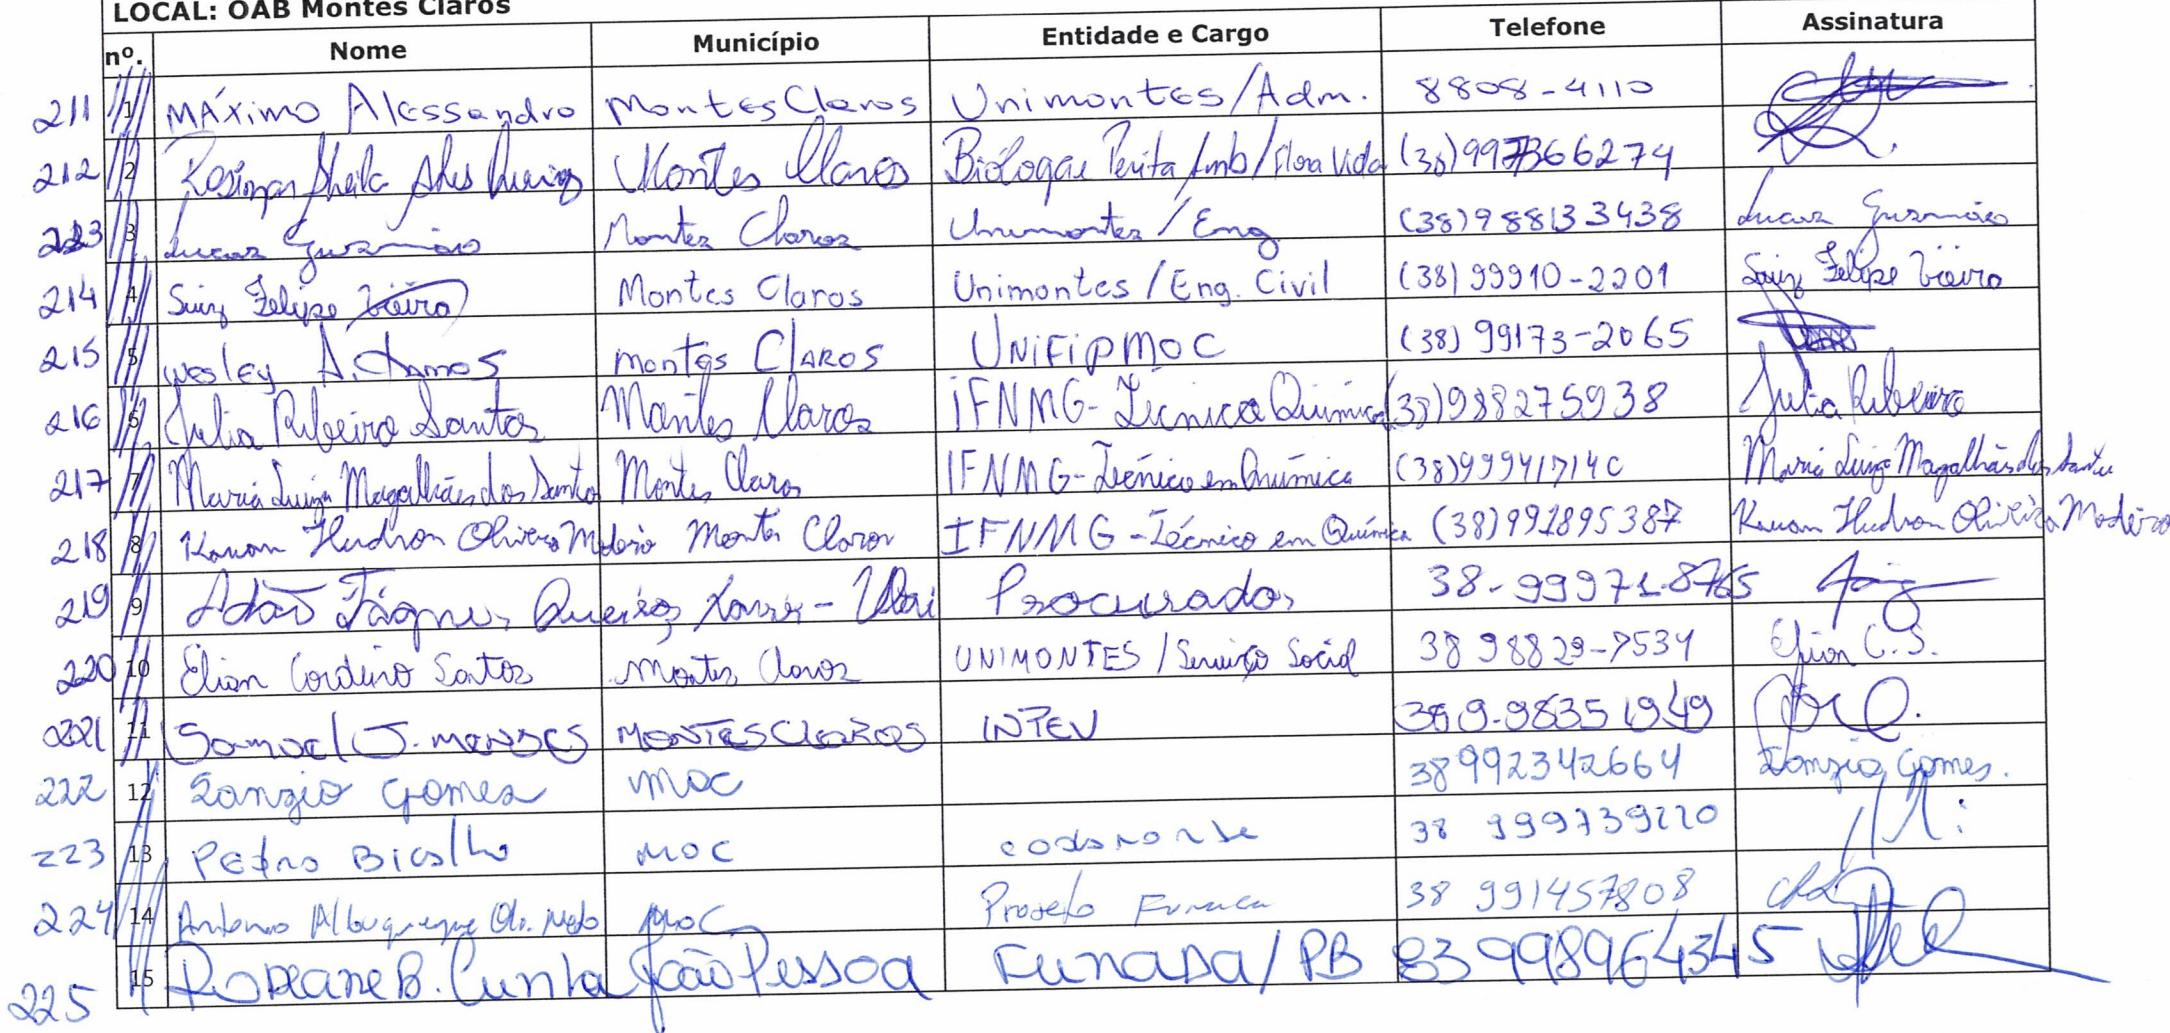 LOCAL: OAB Montes Claros
nº. Nome Município Entidade e Cargo Telefone Assinatura
211 1 MÁximo Alessandro Montes Claros Unimontes/Adm. 8808-4110
212 2 Montes Claros Bióloga e Perita Amb/Flora Vida
3 Lucas Gusmão Montes Claros Unimontes / Eng (38)988133438 Lucas Gusmão
214 4 Luiz Felipe Vieira Montes Claros Unimontes / Eng. Civil (38) 99910-2201 Luiz Felipe Vieira
215 5 Wesley A. Montes CLAROS UNiFiPMOC (38) 99173-2065
216 6 Julia Ribeiro Santos Montes Claros IFNMG- Química (38)988275938 Julia Ribeiro
217 7 Maria Luiza Magalhães dos Santos Montes Claros IFNMG-Técnico em Química Maria Luiza Magalhães dos Santos
218 8 Kauan Hudson Oliveira Montes Claros IFNMG-Técnico em Química (38)991895387 Kauan Hudson Oliveira
219 9 Adão Fágner Queiroz Procurador
220 10 Elian Cordeiro Santos Montes Claros UNIMONTES / Serviço Social 38 98829-7534 Elian C.S.
11 Samuel J. meneses MONTES CLAROS
222 12 Sanzio Gomes MOC 38 992342664 Sanzio Gomes.
223 13 Pedro Bicalho MOC codanorte
224 14 Antonio Albuquerque MOC Projeto 38 991457808
225 15 B. Cunha João Pessoa Funasa/PB 83 998964345